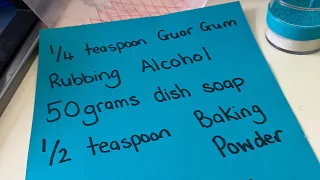 1/4 teaspoon Guar Gum
Rubbing Alcohol
50grams dish soap
1/2 teaspoon Baking
Powder